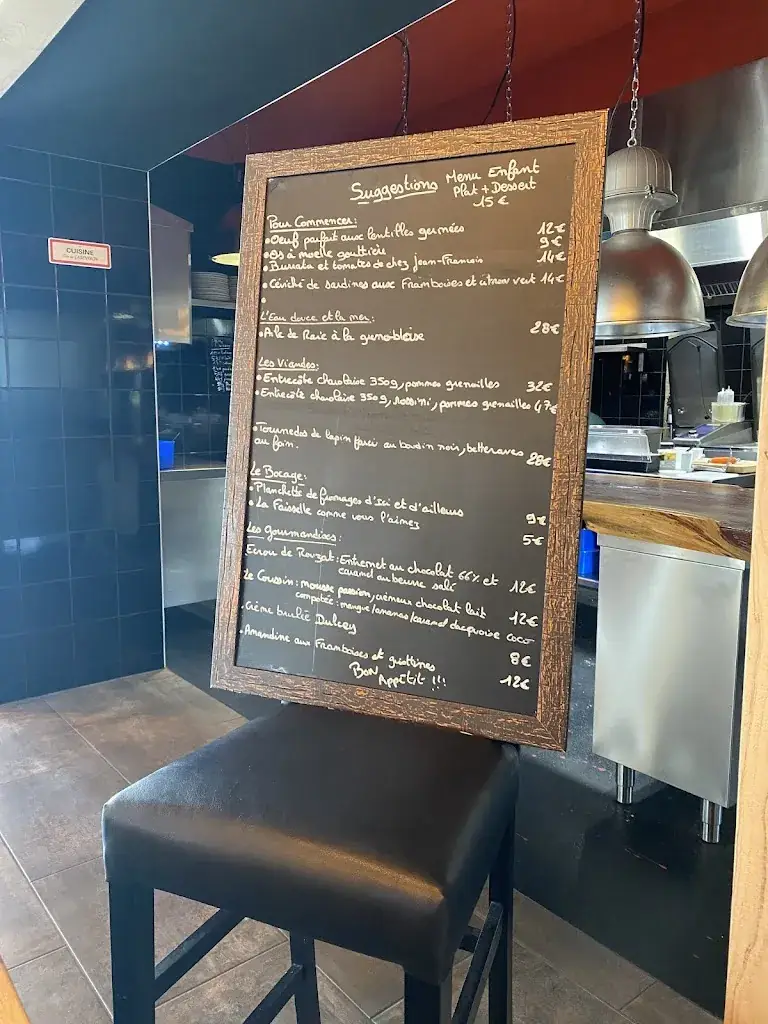 CUISINE
Suggestions
Menu Enfant
Plat + Dessert
15 €
Pour Commencer:
• Oeuf parfait aux lentilles germées 12€
• Os à moelle gouttière 9€
• Burrata et tomates de chez Jean-Francois 14€
• Céviché de sardines aux Framboises et citron vert 14€
L'Eau douce et la mer:
• Aile de Raie à la grenobloise 28€
Les Viandes:
• Entrecôte charolaise 350g, pommes grenailles 32€
• Entrecôte charolaise 350g, rossini, pommes grenailles 47€
• Tournedos de lapin farci au boudin noir, betteraves
au foin. 28€
Le Bocage:
• Planchette de fromages d'ici et d'ailleurs 9€
• La Faisselle comme vous l'aimez 5€
Les Gourmandises:
Ecrou de Rouzat: Entremet au chocolat 66% et
caramel au beurre salé 12€
Le Coussin: mousse passion, crémeux chocolat lait
compotée: mangue/ananas/caramel dacquoise coco 12€
• Crème brulée Dulcey 8€
• Amandine aux Framboises et griottines 12€
BON
Appétit !!!